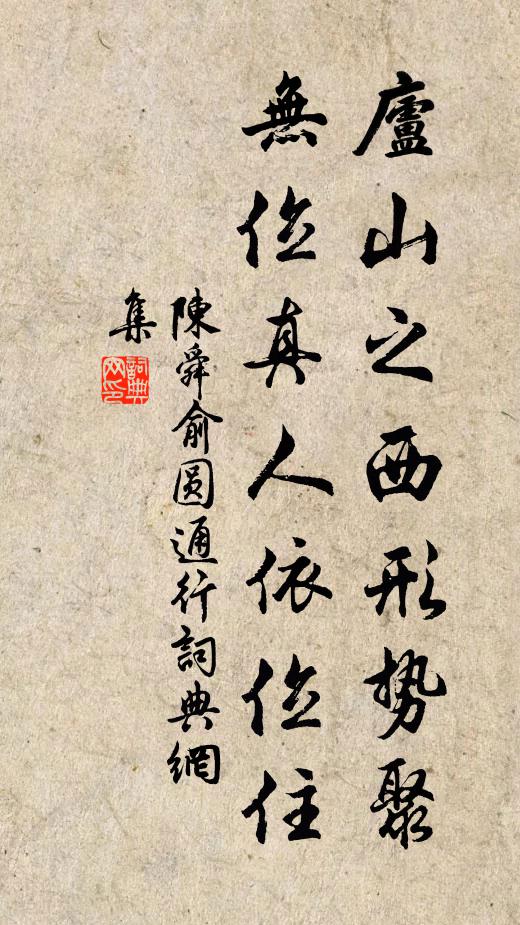 廬山之西形势聚
無位真人依位住
陳舜俞圓通行詞典網
集
詞典
网印